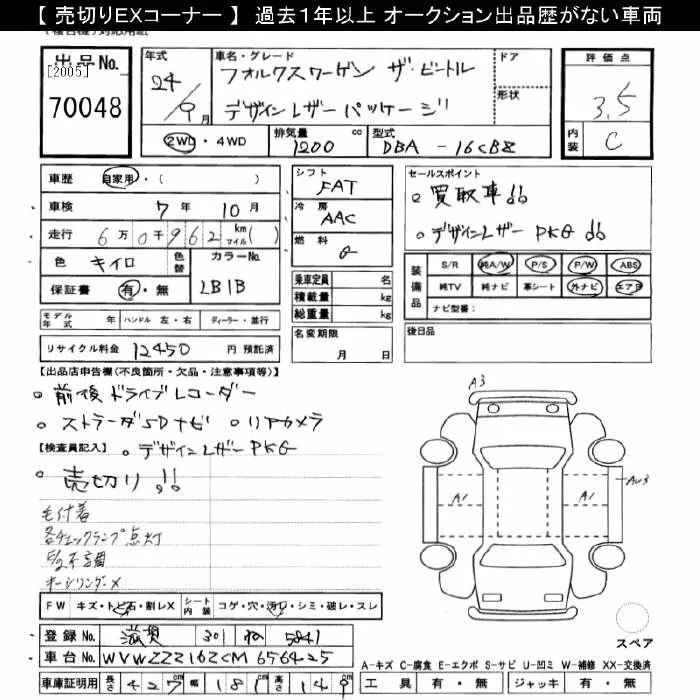 【 売切りEXコーナー 】 過去１年以上 オークション出品歴がない車両
出品No.
[2005]
70048
年式 24/9月
車名・グレード フォルクスワーゲン ザ・ビートル
デザインレザーパッケージ
ドア
形状
評価点
3.5
内装 C
2WD・4WD
排気量 1200 cc
型式 DBA - 16CBZ
車歴 自家用・( )
車検 7年 10月
走行 6万0千962 km マイル( )
色 キイロ 色替 カラーNo. LB1B
保証書 有・無
シフト FAT
冷房 AAC
燃料 G
乗車定員 名
積載量 kg
総重量 kg
名変期限 月 日
セールスポイント
買取車!!
デザインレザー PKG !!
装備品 S/R 純A/W P/S P/W ABS
純TV 純ナビ 革シート 外ナビ エアB
ナビ型番:
後日品
モデル年式 年 ハンドル 左・右 ディーラー・並行
リサイクル料金 12450 円 預託済
【出品店申告欄(不良箇所・欠品・注意事項等)】
前後ドライブレコーダー
ストラーダSDナビ リアカメラ
【検査員記入】 デザインレザーPKG
売切り!!
毛付着
各チェックランプ点灯
オーシリンダー×
A3
A1
A1
AW3
スペア
FW キズ・トビ石・割レX シート内装 コゲ・穴・汚レ・シミ・破レ・スレ
登録No. 滋賀 301 ね 5841
車台No. WVWZZZ16ZCM656425
車庫証明用 長さ 427cm 幅 181cm 高さ 149cm
A-キズ C-腐食 E-エクボ S-サビ U-凹ミ W-補修 XX-交換済
工具 有・無 ジャッキ 有・無